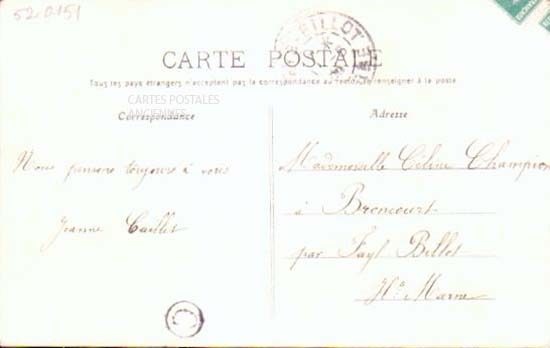 520151
CARTE POSTALE
Tous les pays étrangers n'acceptent pas la correspondance au recto, se renseigner à la poste
CARTES POSTALES
ANCIENNES
Correspondance
Nous pensons toujours à vous
Jeanne Caillet
Adresse
Mademoiselle Céline Champion
à Broncourt
par Fayl Billot
Hte Marne
C